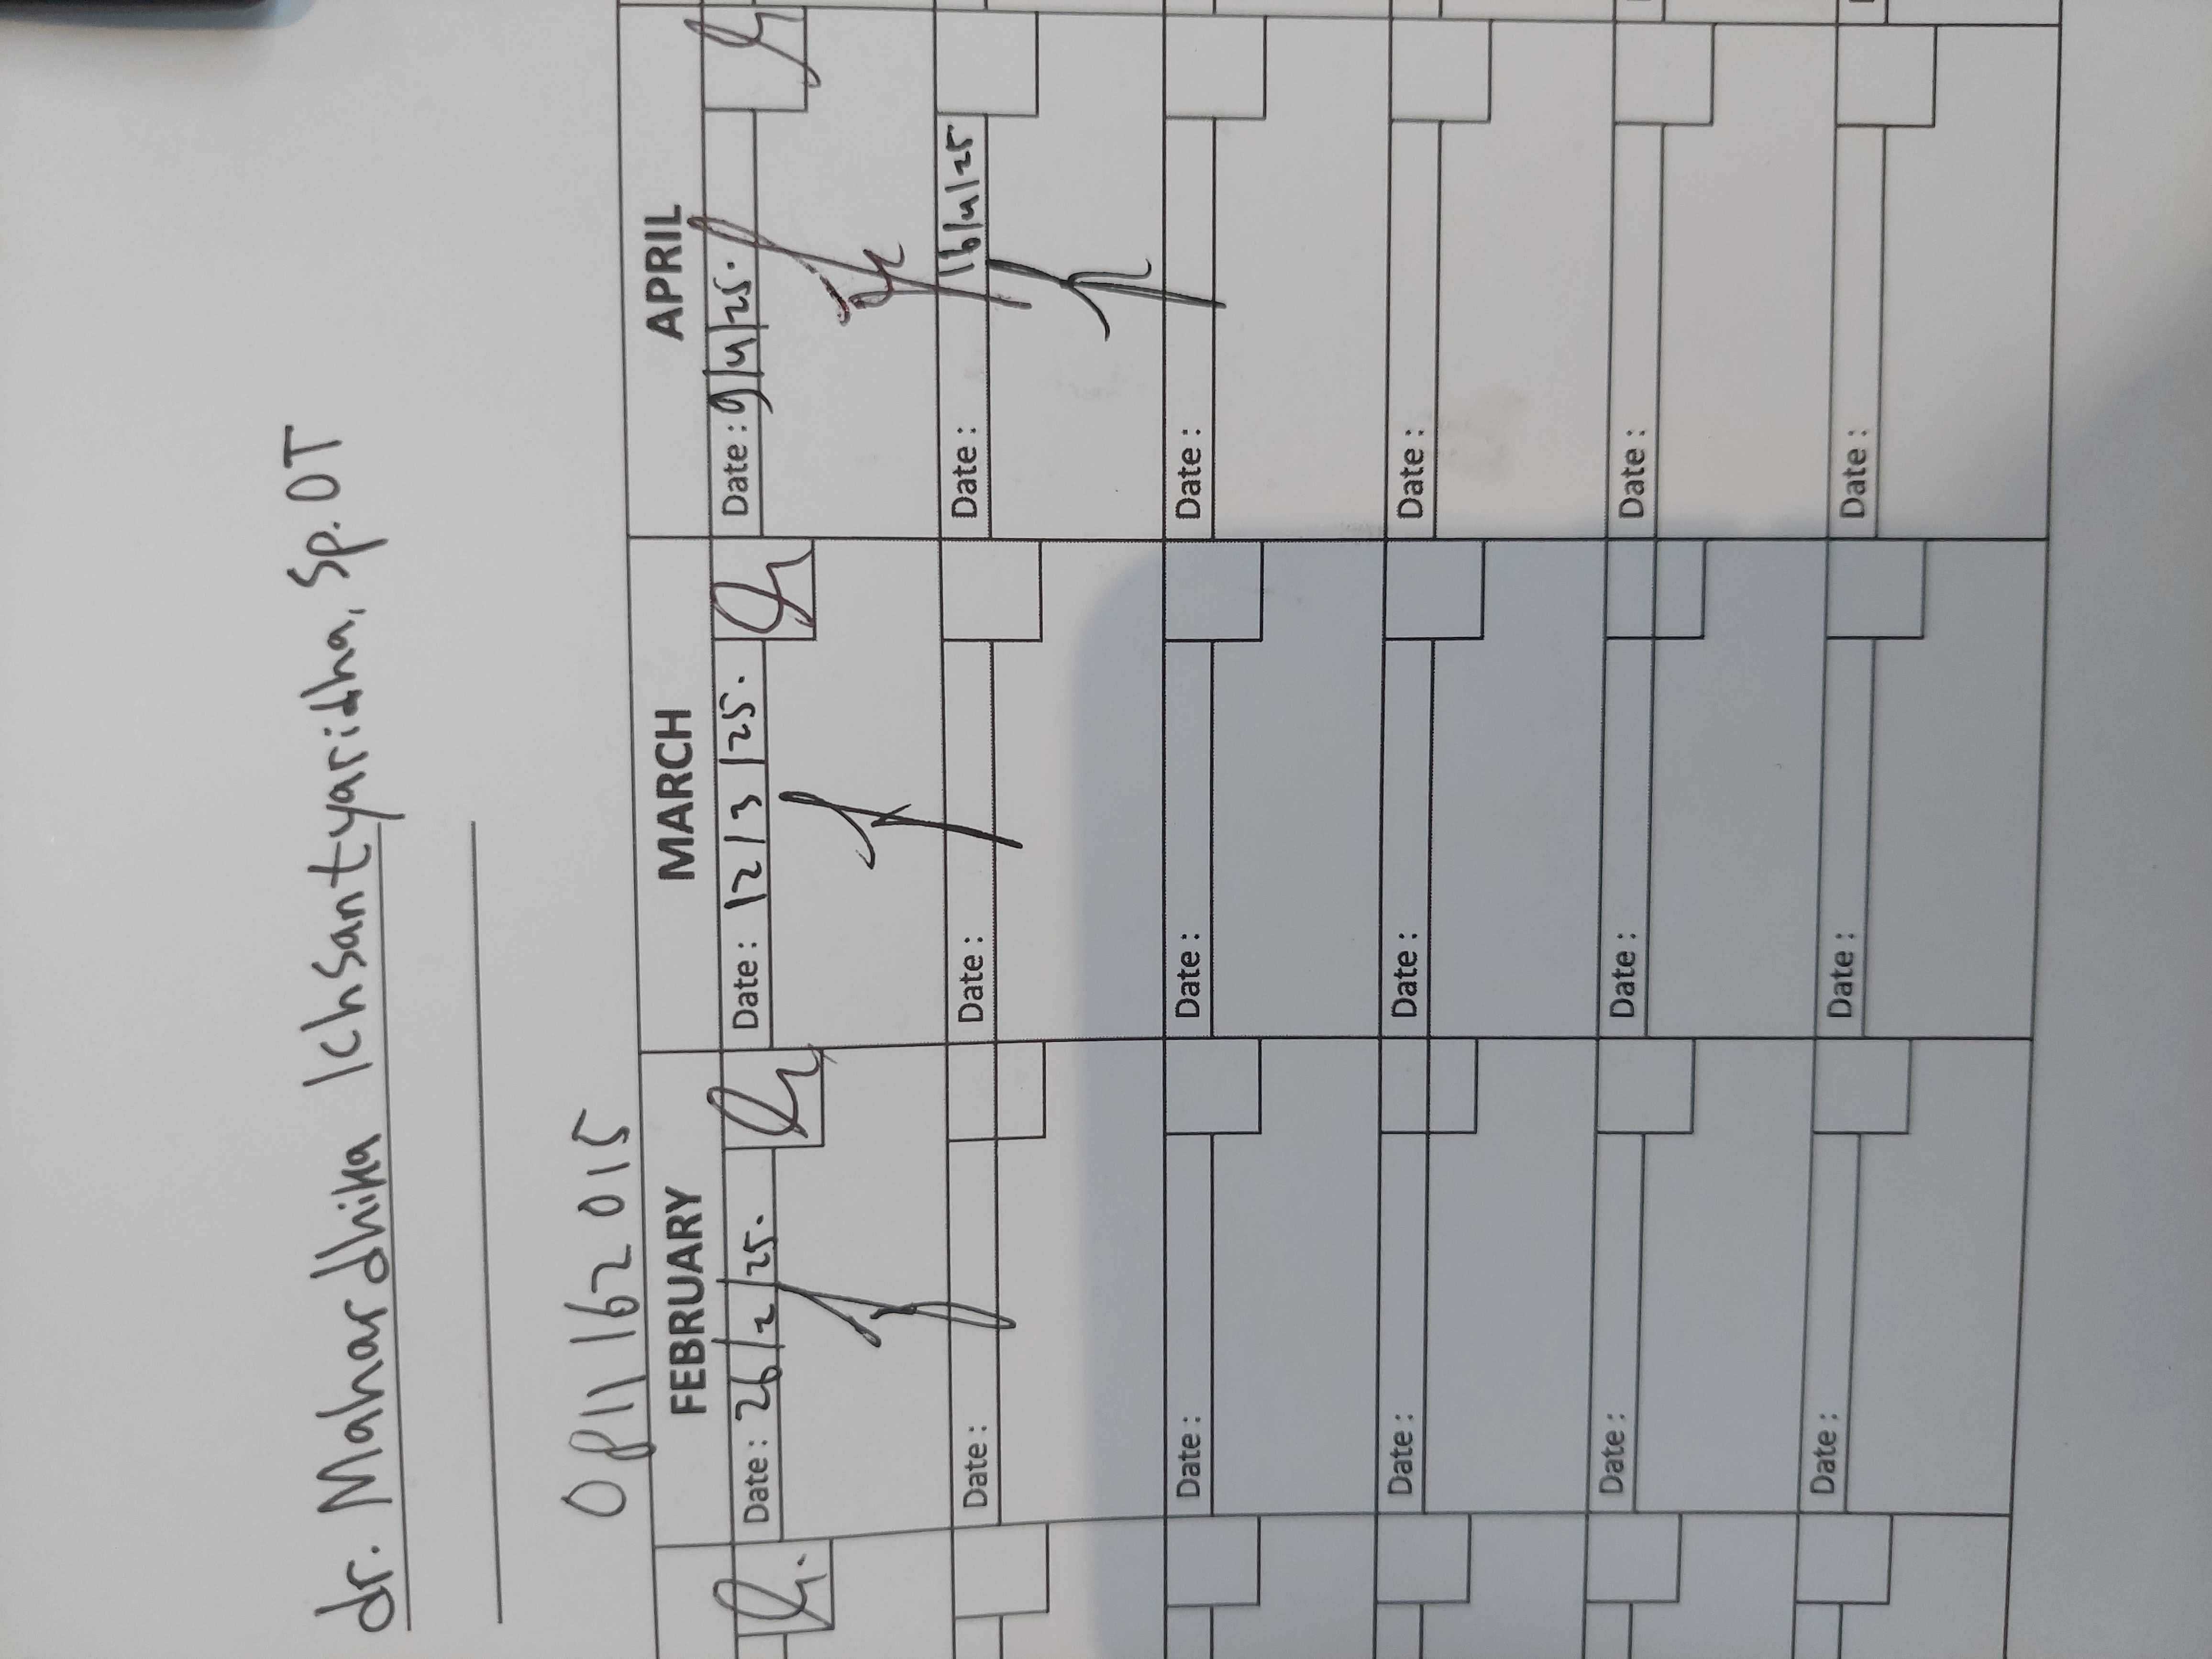 dr. Mahardhika Ichsantyaridha, Sp.OT
0811162015
FEBRUARY MARCH APRIL
Date: 26/2/25. Date: 12/3/25. Date: 9/4/25.
Date: Date: Date: 16/4/25
Date: Date: Date:
Date: Date: Date:
Date: Date: Date:
Date: Date: Date: